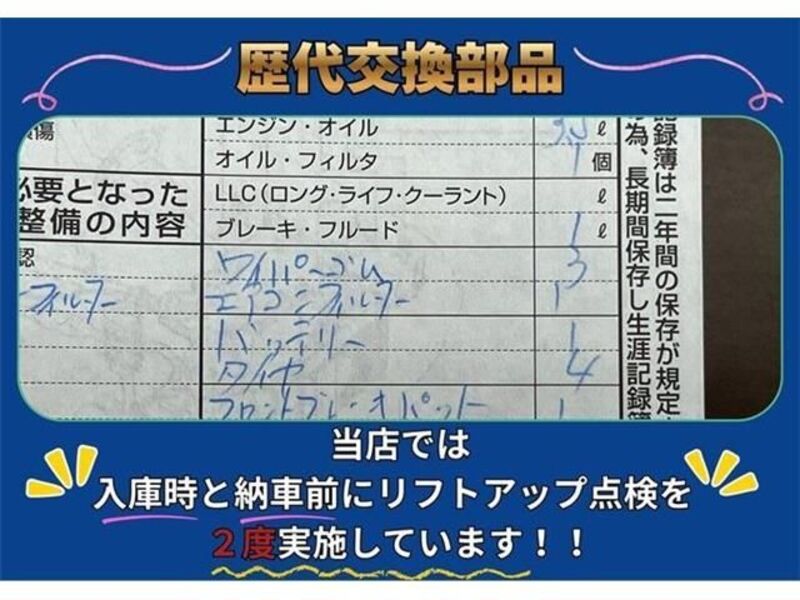 歴代交換部品
エンジン・オイル ℓ
オイル・フィルタ 1 個
LLC(ロング・ライフ・クーラント) ℓ
ブレーキ・フルード 1 ℓ
必要となった
整備の内容
ワイパーゴム 3
エアコンフィルター 1
フィルター
バッテリー 1
タイヤ 4
フロントブレーキパット 1
記録簿は二年間の保存が規定
為、長期間保存し生涯記録簿
当店では
入庫時と納車前にリフトアップ点検を
2度実施しています！！